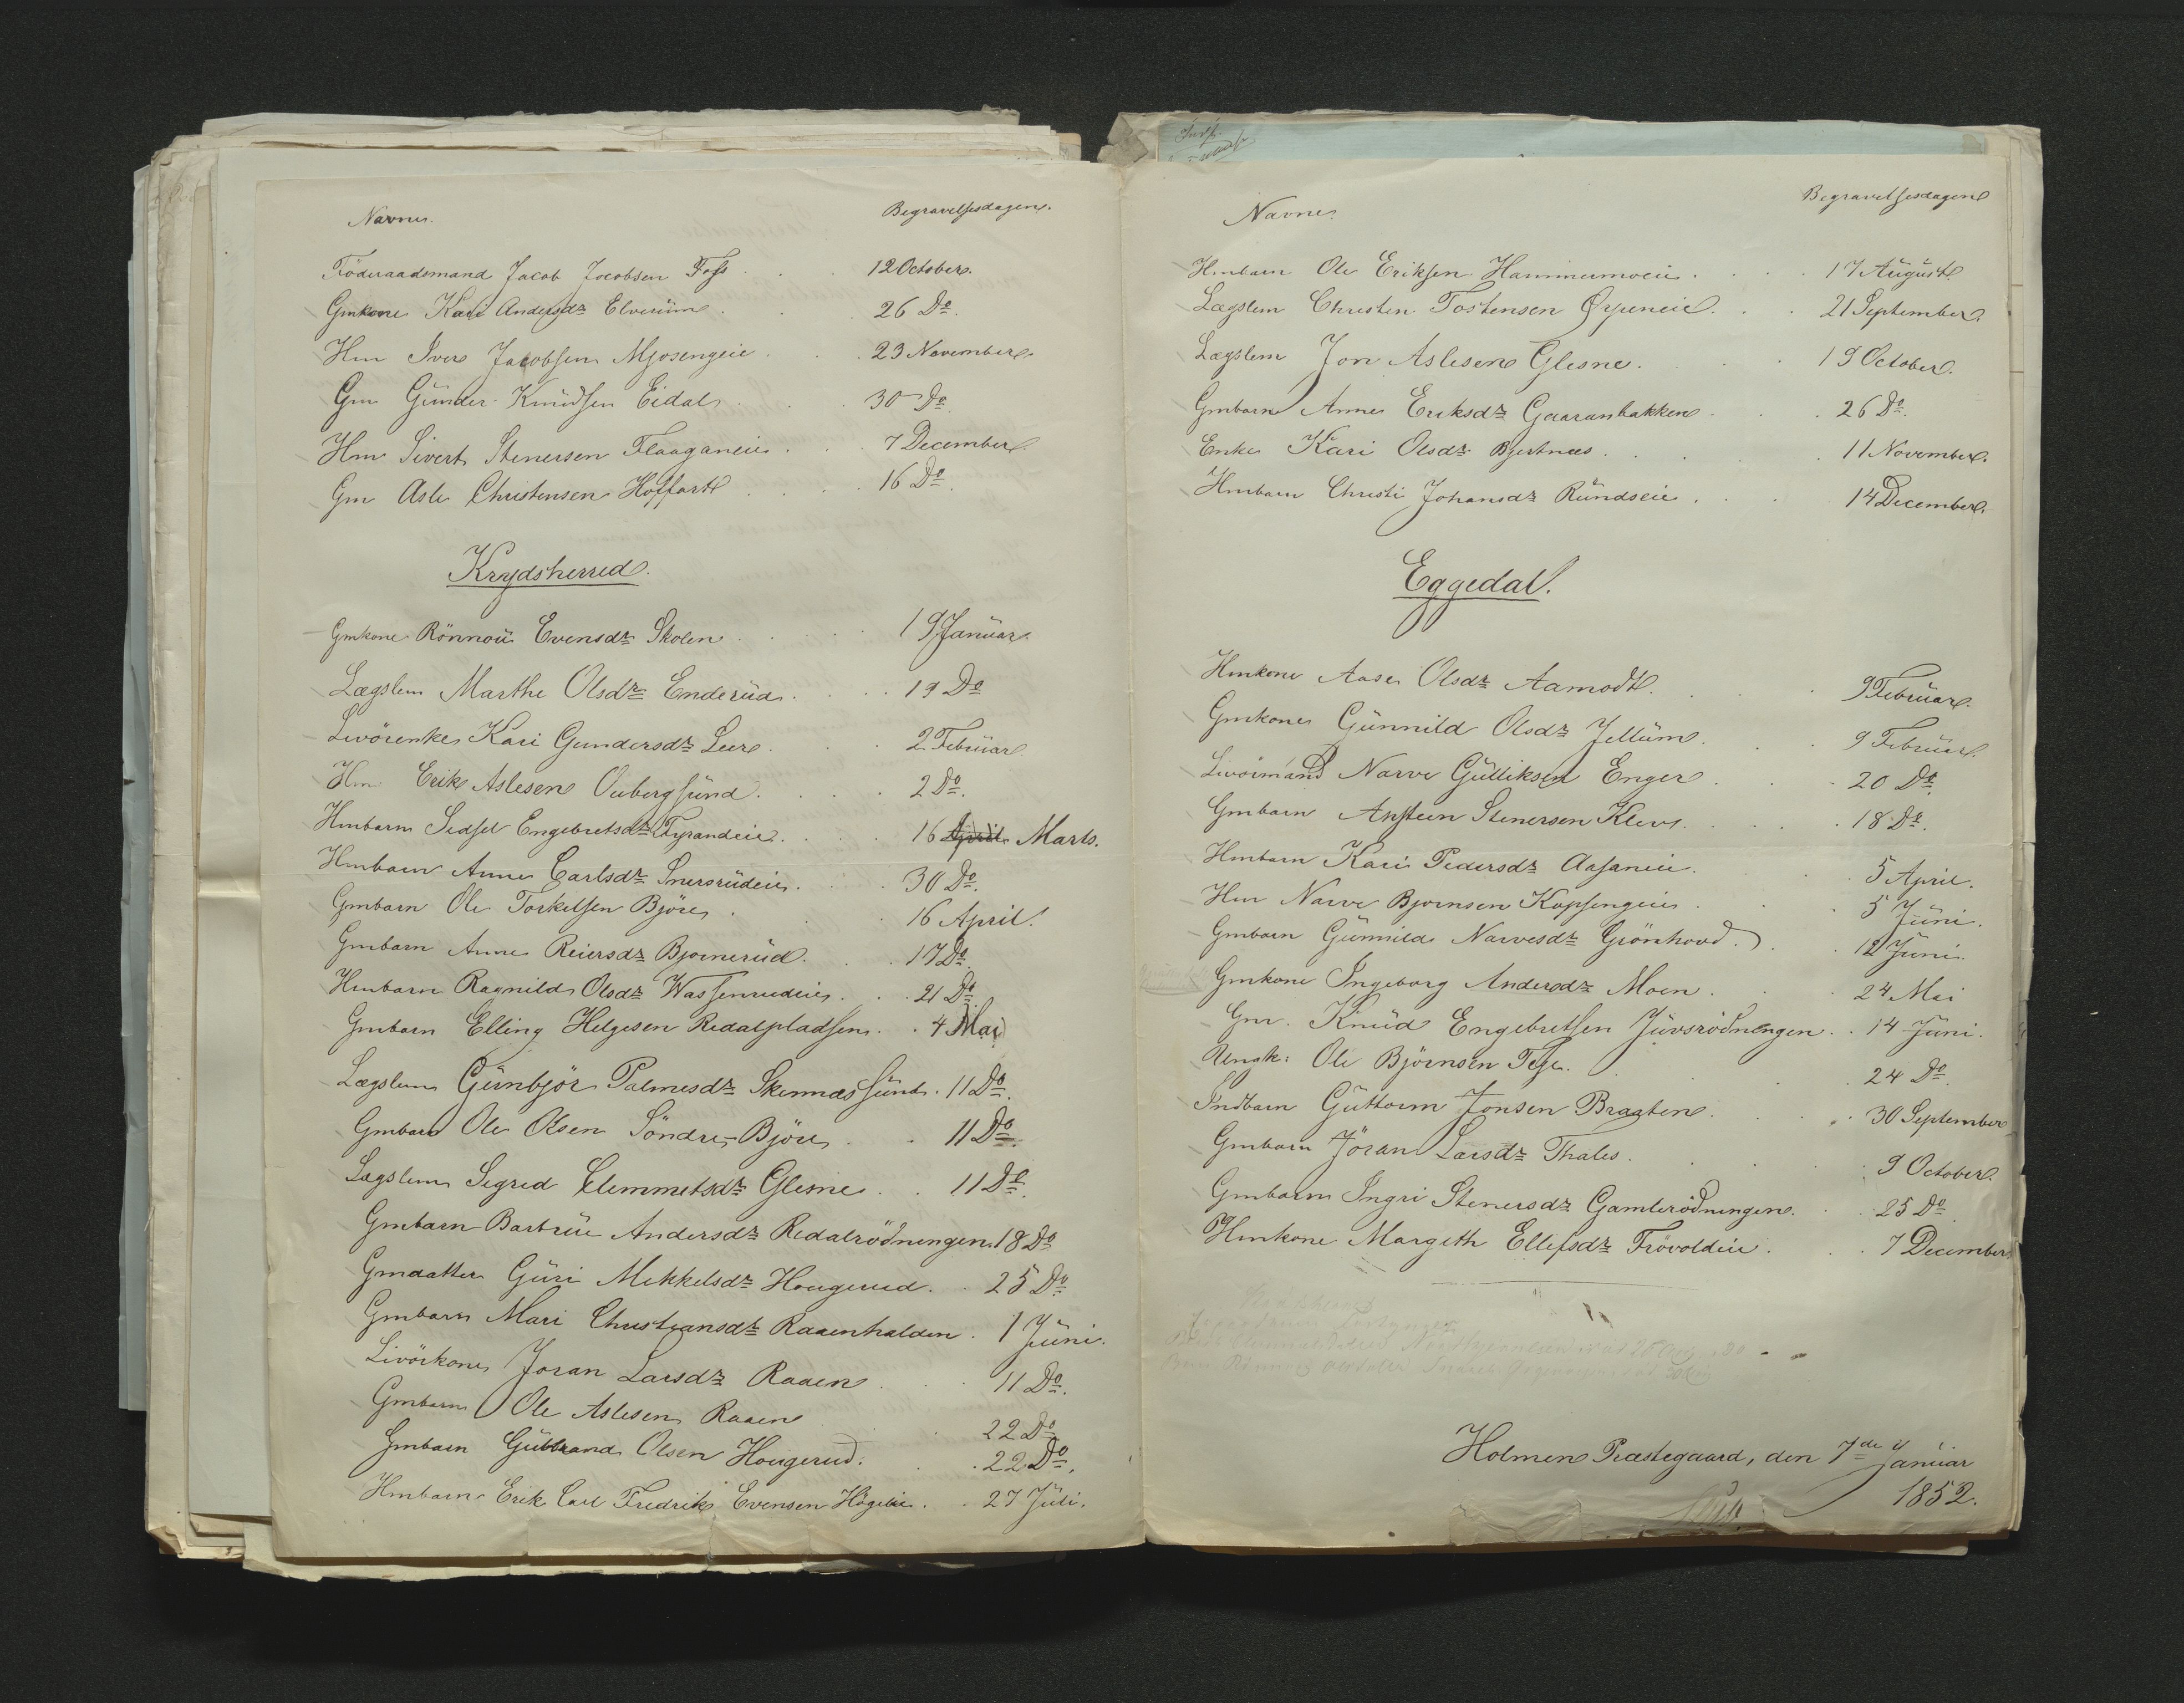 Navne.
Begravelsesdagene.
Föderaadsmand Jacob Jacobsen Foss 12 October.
Gmkone Kari Andersdr Elverüm 26 Do.
Hm Iver Jacobsen Mjosengeie 23 November.
Gm Günder Knüdsen Eidal 30 Do.
Hm Sivert Stenersen Flaaganeie 7 December.
Gm Asle Christensen Hoffart 16 Do.
Krydsherred.
Gmkone Rönnoü Evensdr Skolen 19 Janüar.
Lægslem Marthe Olsdr Enderüd 19 Do
Livörenke Kari Gundersdr Leere 2 Febrüar
Hm Erik Aslesen Oubergsünd. 2 Do.
Hmbarn Sidsel Engebretsdr Fyrandeie. 16 April Marts.
Hmbarn Anne Carlsdr Snersrüdeie. 30 Do.
Gmbarn Ole Torkelsen Björe 16 April.
Gmbarn Anne Reiersdr Bjornerüd. 17 Do.
Hmbarn Ragnild Olsdr Wassenrudeie. 21 Do.
Gmbarn Elling Helgesen Redalpladsen. 4 Mai
Lægslem Günbjör Palmesdr Skinnæssünd. 11 Do.
Gmbarn Ole Olsen Söndre-Björe 11 Do.
Lægslem Sigrid Clemmetsdr Glesne 11 Do.
Gmbarn Barbrüe Andersdr Redalrödningen. 18 Do
Gmdatter Güri Mekkelsdr Hougerud. 25 Do.
Gmbarn Mari Christiansdr Raaenhalden. 1 Jüni.
Livörkone Joran Larsdr Raaen 11 Do.
Gmbarn Ole Aslesen Raaen 22 Do
Gmbarn Gülbrand Olsen Hougerud. 22 Do.
Hmbarn Erik Carl Fredrik Evensen Högeie. 27 Jüli.
Navne.
Begravelsesdagene
Hmbarn Ole Eriksen Hammermoeie. 17 Aügust
Lægslem Christen Tostensen Ørpeneie. 21 September.
Lægslem Jon Aslesen Glesne. 19 October.
Gmbarn Anne Eriksdr Gaaranbakken 26 Do.
Enke Kari Olsdr Bjertnæs. 11 November.
Hmbarn Christi Johansdr Ründseie. 14 December.
Eggedal.
Hmkone Aase Olsdr Aamodt. 9 Febrüar.
Gmkone Günnild Olsdr Jellüm. 9 Febrüar.
Livörmand Narve Gülliksen Enger 20 Do.
Gmbarn Ansteen Stenersen Kleve. 18 Do.
Hmbarn Kari Pedersdr Aasaneie. 5 April.
Hm Narve Bjornsen Kopsengeie 5 Jüni.
Gmbarn Günnild Narvesdr Grönhovd. 12 Jüni.
Gmkone Ingeborg Andersdr Moen. 24 Mai
Gm. Knüd Engebretsen Jüvsrödningen. 14 Jüni.
Ungk: Ole Björnsen Teige. 24 Do.
Indbarn Güttorm Jonsen Braaten. 30 September
Gmbarn Jöran Larsdr Thales. 9 October.
Gmbarn Ingri Stenersdr Gamlerödningen. 25 Do.
Hmkone Margith Ellefsdr Frövoldeie. 7 December
Holmen Præstegaard, den 7de Janüar
1852.